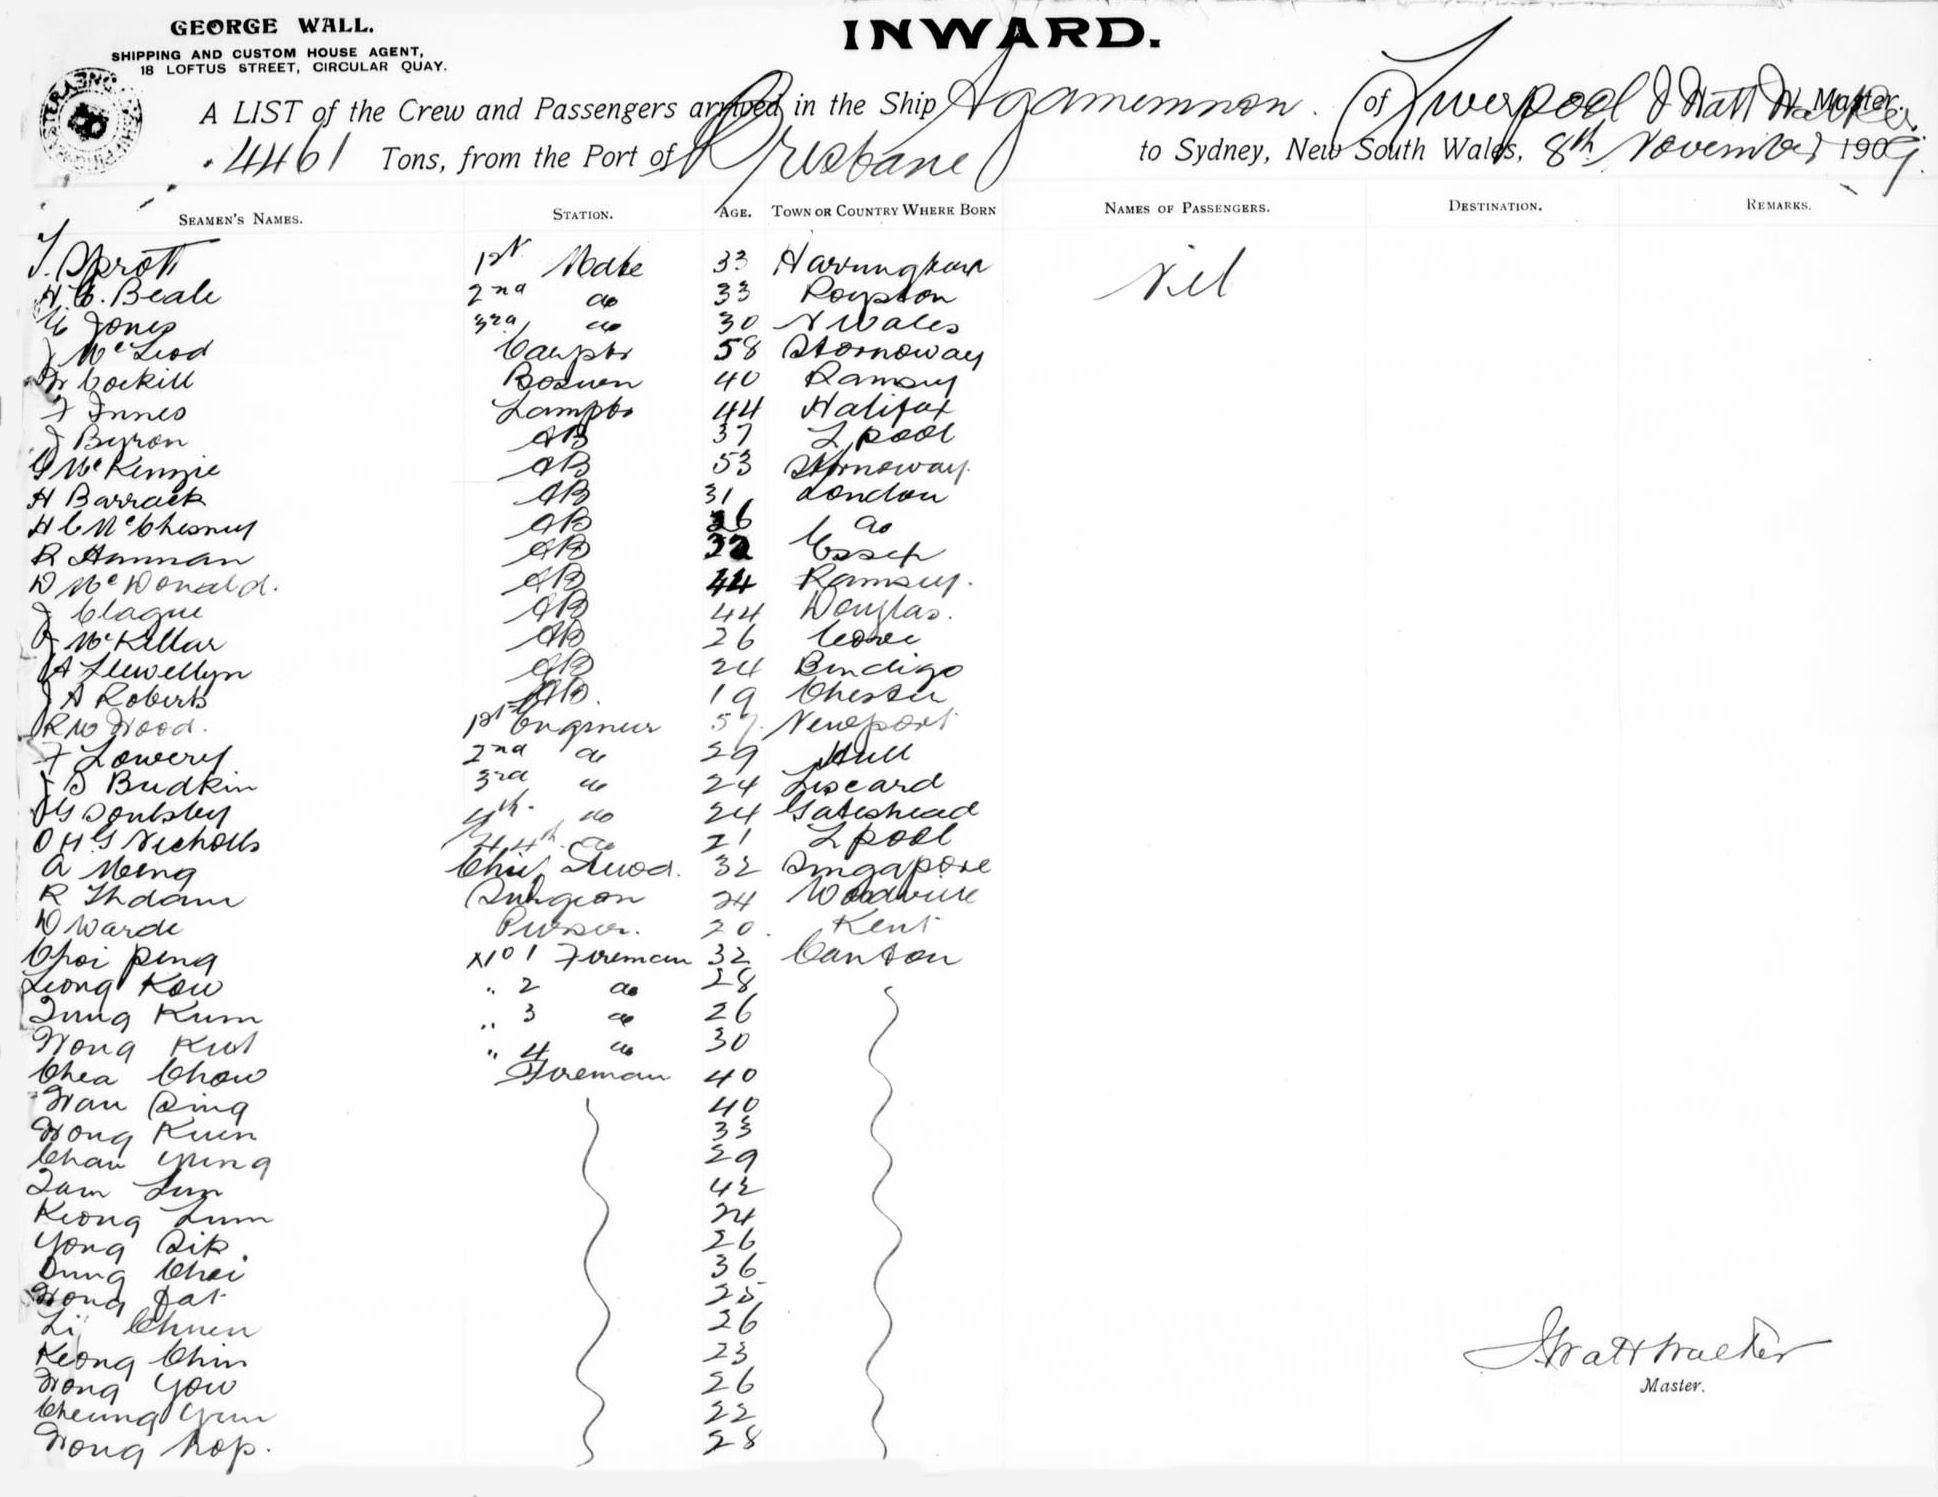 GEORGE WALL.
SHIPPING AND CUSTOM HOUSE AGENT,
18 LOFTUS STREET, CIRCULAR QUAY.
INWARD.
A LIST of the Crew and Passengers arrived in the Ship Agamemnon. of Liverpool J Watt Walker Master.
4461 Tons, from the Port of Brisbane to Sydney, New South Wales, 8th November 1909.
SEAMEN'S NAMES. STATION. AGE. TOWN OR COUNTRY WHERE BORN NAMES OF PASSENGERS. DESTINATION. REMARKS.
T. Sprott 1st Mate 33 Harrington Nil
H. C. Beale 2nd do 33 Royston
Jones 3rd do 30 N Wales
J McLeod Carptr 58 Stornoway
W Cockill Boswn 40 Ramsey
F Innes Lamptr 44 Halifax
J Byron AB 37 L pool
G McKenzie AB 53 Stornoway.
H Barrack AB 31 London
H C McChesney AB 26 do
R Hamman AB 32 Essex
D McDonald. AB 44 Ramsey.
J Clague AB 44 Douglas.
McKellar AB 26 Cove
A Llewellyn AB 24 Bendigo
J A Roberts AB. 19 Chester
R W Wood. 1st Engineer 57. Newport
F Lowery 2nd do 29 Hull
J S Budkin 3rd do 24 Liscard
J G Soulsby 4th. do 24 Gateshead
O H. G Nicholls 4th. do 21 L pool
A Meng Chief Stwd. 32 Singapore
R Surgeon 24
D Warde Purser. 20. Kent
Choi peng No 1 Fireman 32 Canton
Leong Kow " 2 do 28
Tung Kum " 3 do 26
Wong Kut " 4 do 30
Chea Chow Fireman 40
Wan Sing 40
Wong Kuen 33
Chan Yung 29
Tam Lun 42
Keong Lum 24
Yong Sik. 26
Dung Choi 36
Wong Fat 25
Li Chuen 26
Keong Chin 23
Wong Yow 26
Cheung Yun 22
Wong hop. 28
J Watt Walker
Master.